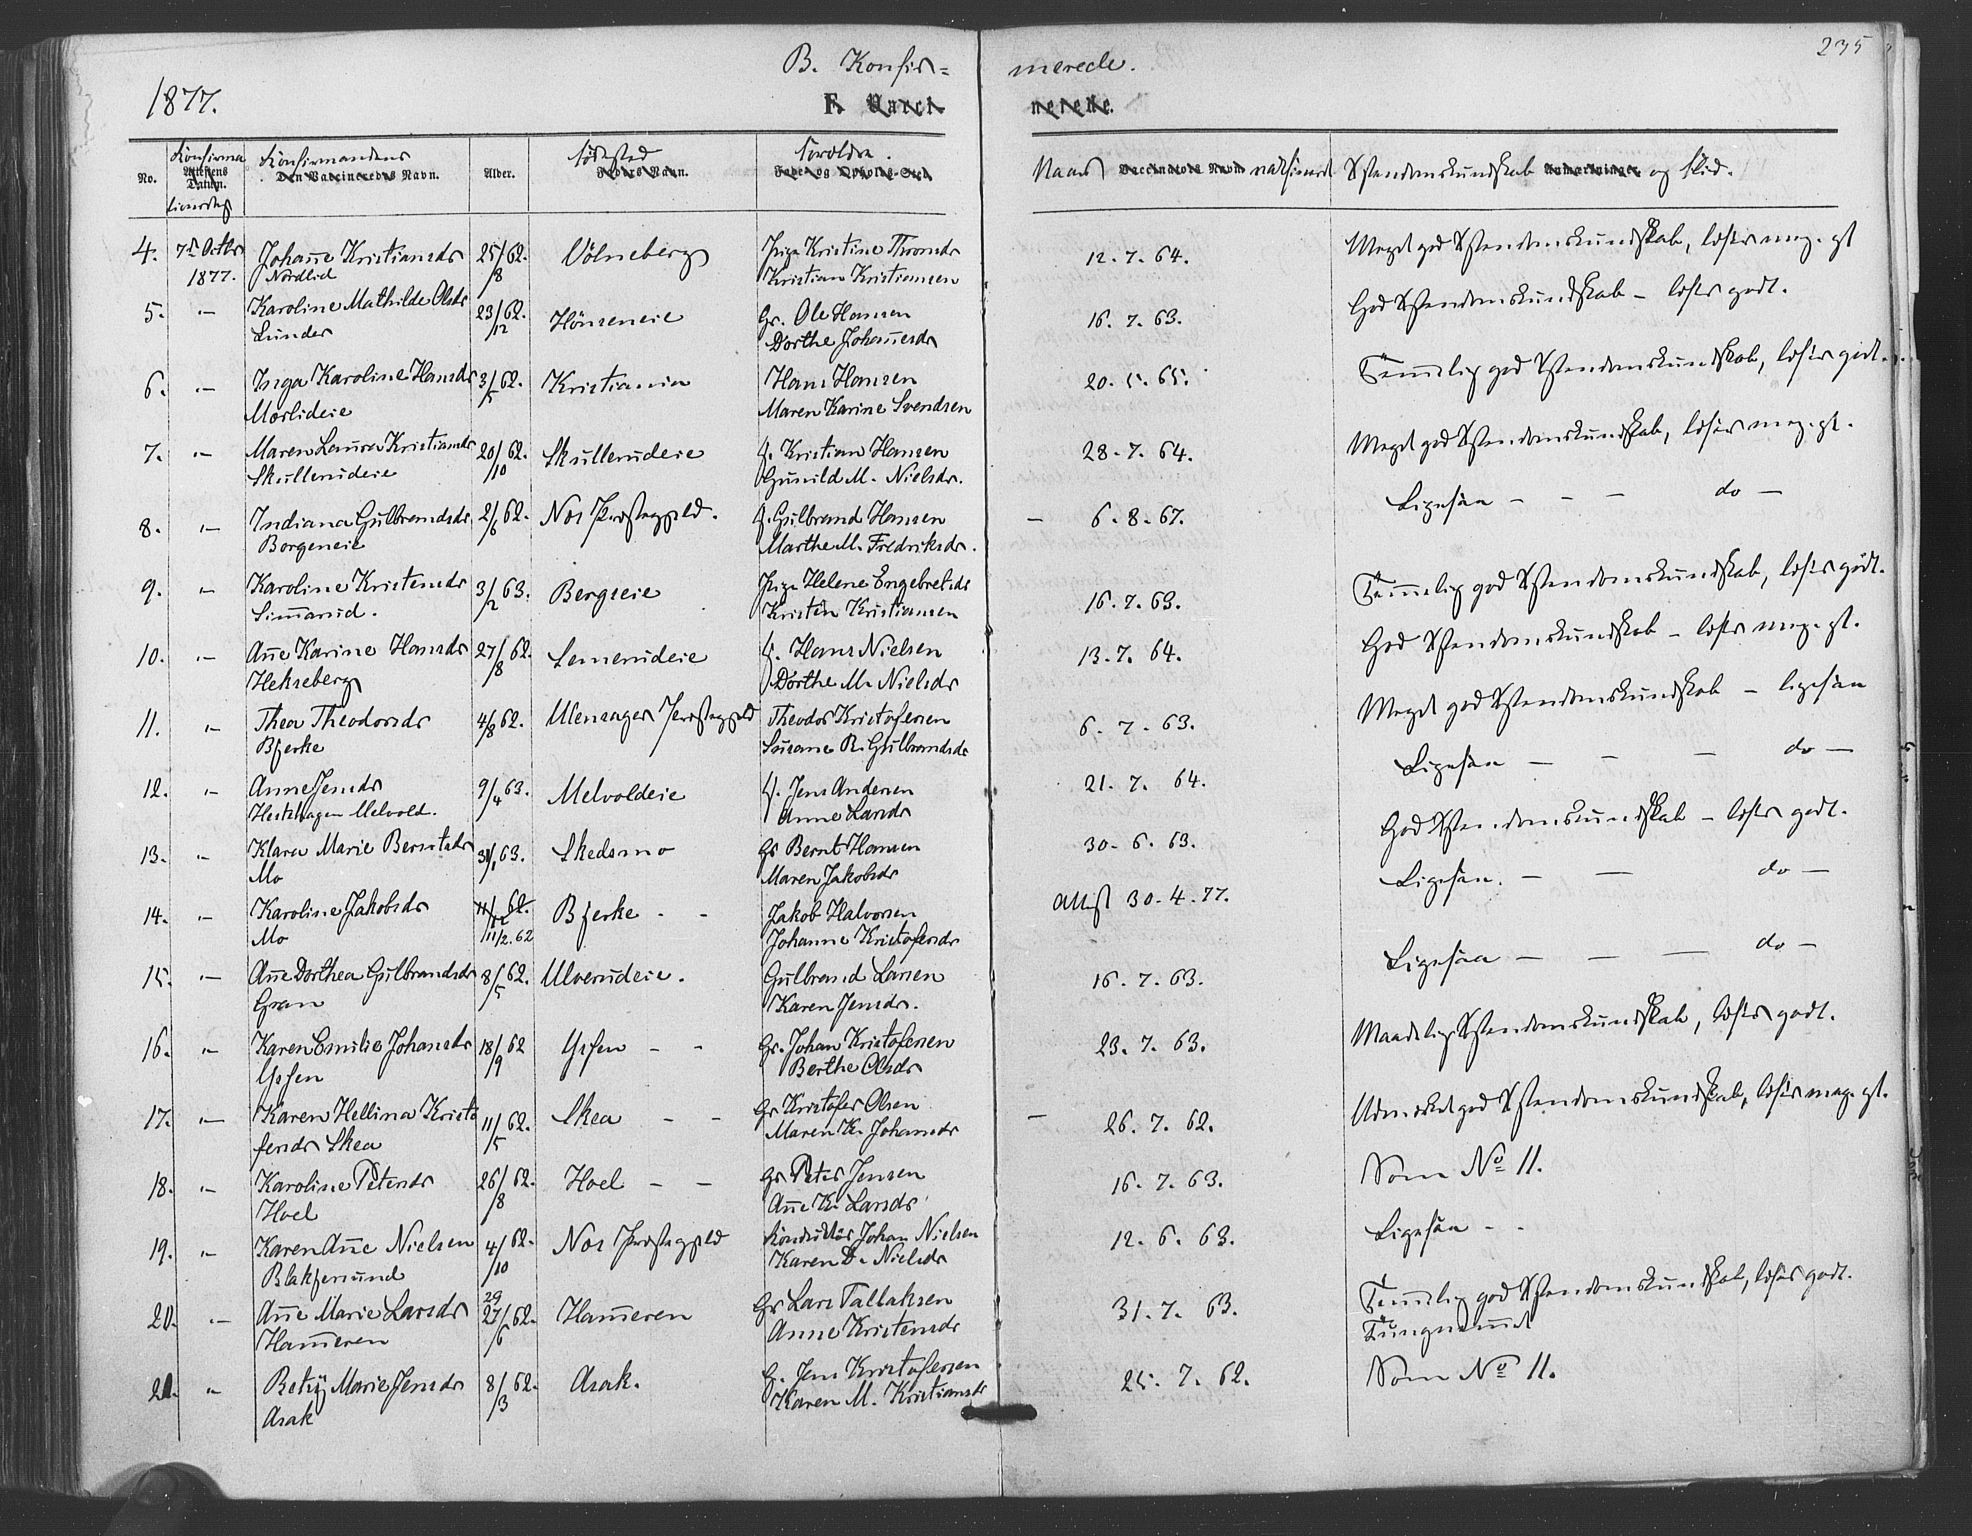 235
B. Konfir= merede.
1877.
F. Vacci- nerede.
No.
Konfirma
Attestens
Datum.
tionsdag
Konfirmandens
Den Vaccineredes Navn.
Alder.
Fødested
Faders Navn.
Forældre.
Faders og Opholds-Sted
Naar Vaccinators Navn vaksineret
Kristendomskundskab Anmærkninger og Flid.
4. 7de Octbr 1877. Johanne Kristiansdr 25/8 62. Völneberg Pige Kristine Thronsdr 12. 7. 64. Meget god Kristendomskundskab, læser meg. gt
Nordlid Kristian Kristiansen
5. „ Karoline Mathilde Olsdr 23/12 62. Hönseneie Gr. Ole Hansen 16. 7. 63. God Kristendomskundskab – læser godt.
Lunder Dorthe Johannesdr
6. „ Inga Karoline Hansdr 3/5 62. Kristiania Hans Hansen 20. 5. 65. Temmelig god Kristendomskundskab, læser godt.
Mørlideie Maren Karine Svendsen
7. „ Maren Laura Kristiansdr 20/10 62. Skullerudeie F. Kristian Hansen 28. 7. 64. Meget god Kristendomskundskab, læser meg. gt.
Skullerudeie Gunild M. Nielsdr.
8. „ Indiana Gulbrandsdr 2/6 62. Nes Præstegjeld. F. Gulbrand Hansen – 6. 8. 67. Ligesaa – – – do –
Borgeneie Marthe M. Fredriksdr.
9. „ Karoline Kristensdr 3/2 63. Bergseie Pige Helene Engebretsdr 16. 7. 63. Temmelig god Kristendomskundskab, læser godt.
Simarud. Kristen Kristiansen
10. „ Anne Karine Hansdr 27/8 62. Lemerudeie F. Hans Nielsen 13. 7. 64. God Kristendomskundskab – læser meg. gt.
Hekseberg Dorthe M. Nielsdr
11. „ Thea Theodorsdr 4/8 62. Ulensager Præstegjeld Theodor Kristofersen 6. 7. 63. Meget god Kristendomskundskab – ligesaa
Bjerke Susane R. Gulbrandsdr
12. „ Anne Jensdr 9/4 63. Melvoldeie F. Jens Andersen 21. 7. 64. Ligesaa – – – do –
Hestehagen Melvold. Anne Larsdr
13. „ Klara Marie Berntsdr 31/1 63. Skedsmo Gr Bernt Hansen 30. 6. 63. God Kristendomskundskab – læser godt.
Mo Maren Jakobsdr
14. „ Karoline Jakobsdr 11/12 62. Bjerke - - Jakob Halvorsen Attest 30. 4. 77. Ligesaa. – – do –
Mo 11/2. 62 Johanne Kristofersdr
15. „ Anne Dorthea Gulbrandsdr 8/5 62. Ulverudeie. Gulbrand Larsen 16. 7. 63. Ligesaa – – – do –
Gran Karen Jensdr.
16. „ Karen Emilie Johansdr 18/9 62 Gr. Johan Kristofersen 23. 7. 63. Maadelig Kristendomskundskab, læser godt.
Berthe Olsdr
17. „ Karen Hellina Kristo 11/5 62. Skea - - Gr Kristofer Olsen – 26. 7. 62. Udmerket god Kristendomskundskab, læser meg. gt.
fersdr Skea Maren K. Johansdr
18. „ Karoline Petersdr 26/8 62. Hoel – – Gr Peter Jensen 16. 7. 63. Som No 11.
Hoel Anne K. Larsdr
19. „ Karen Anne Nielsen 4/10 62. Nes Præstegjeld Konduktør Johan Nielsen 12. 6. 63. Ligesaa - -
Blakjersund Karen D. Nielsdr
20. „ Anne Marie Larsdr 29 27/6 62. Hammeren Gr Lars Tallaksen 31. 7. 63. Temmelig god Kristendomskundskab, læser godt.
Hammeren Anne Kristensdr Tungnemmet
21. „ Betzy Marie Jensdr 8/3 62. Asak. G. Jens Kristofersen 25. 7. 62. Som No 11.
Asak Karen M. Kristiansdr